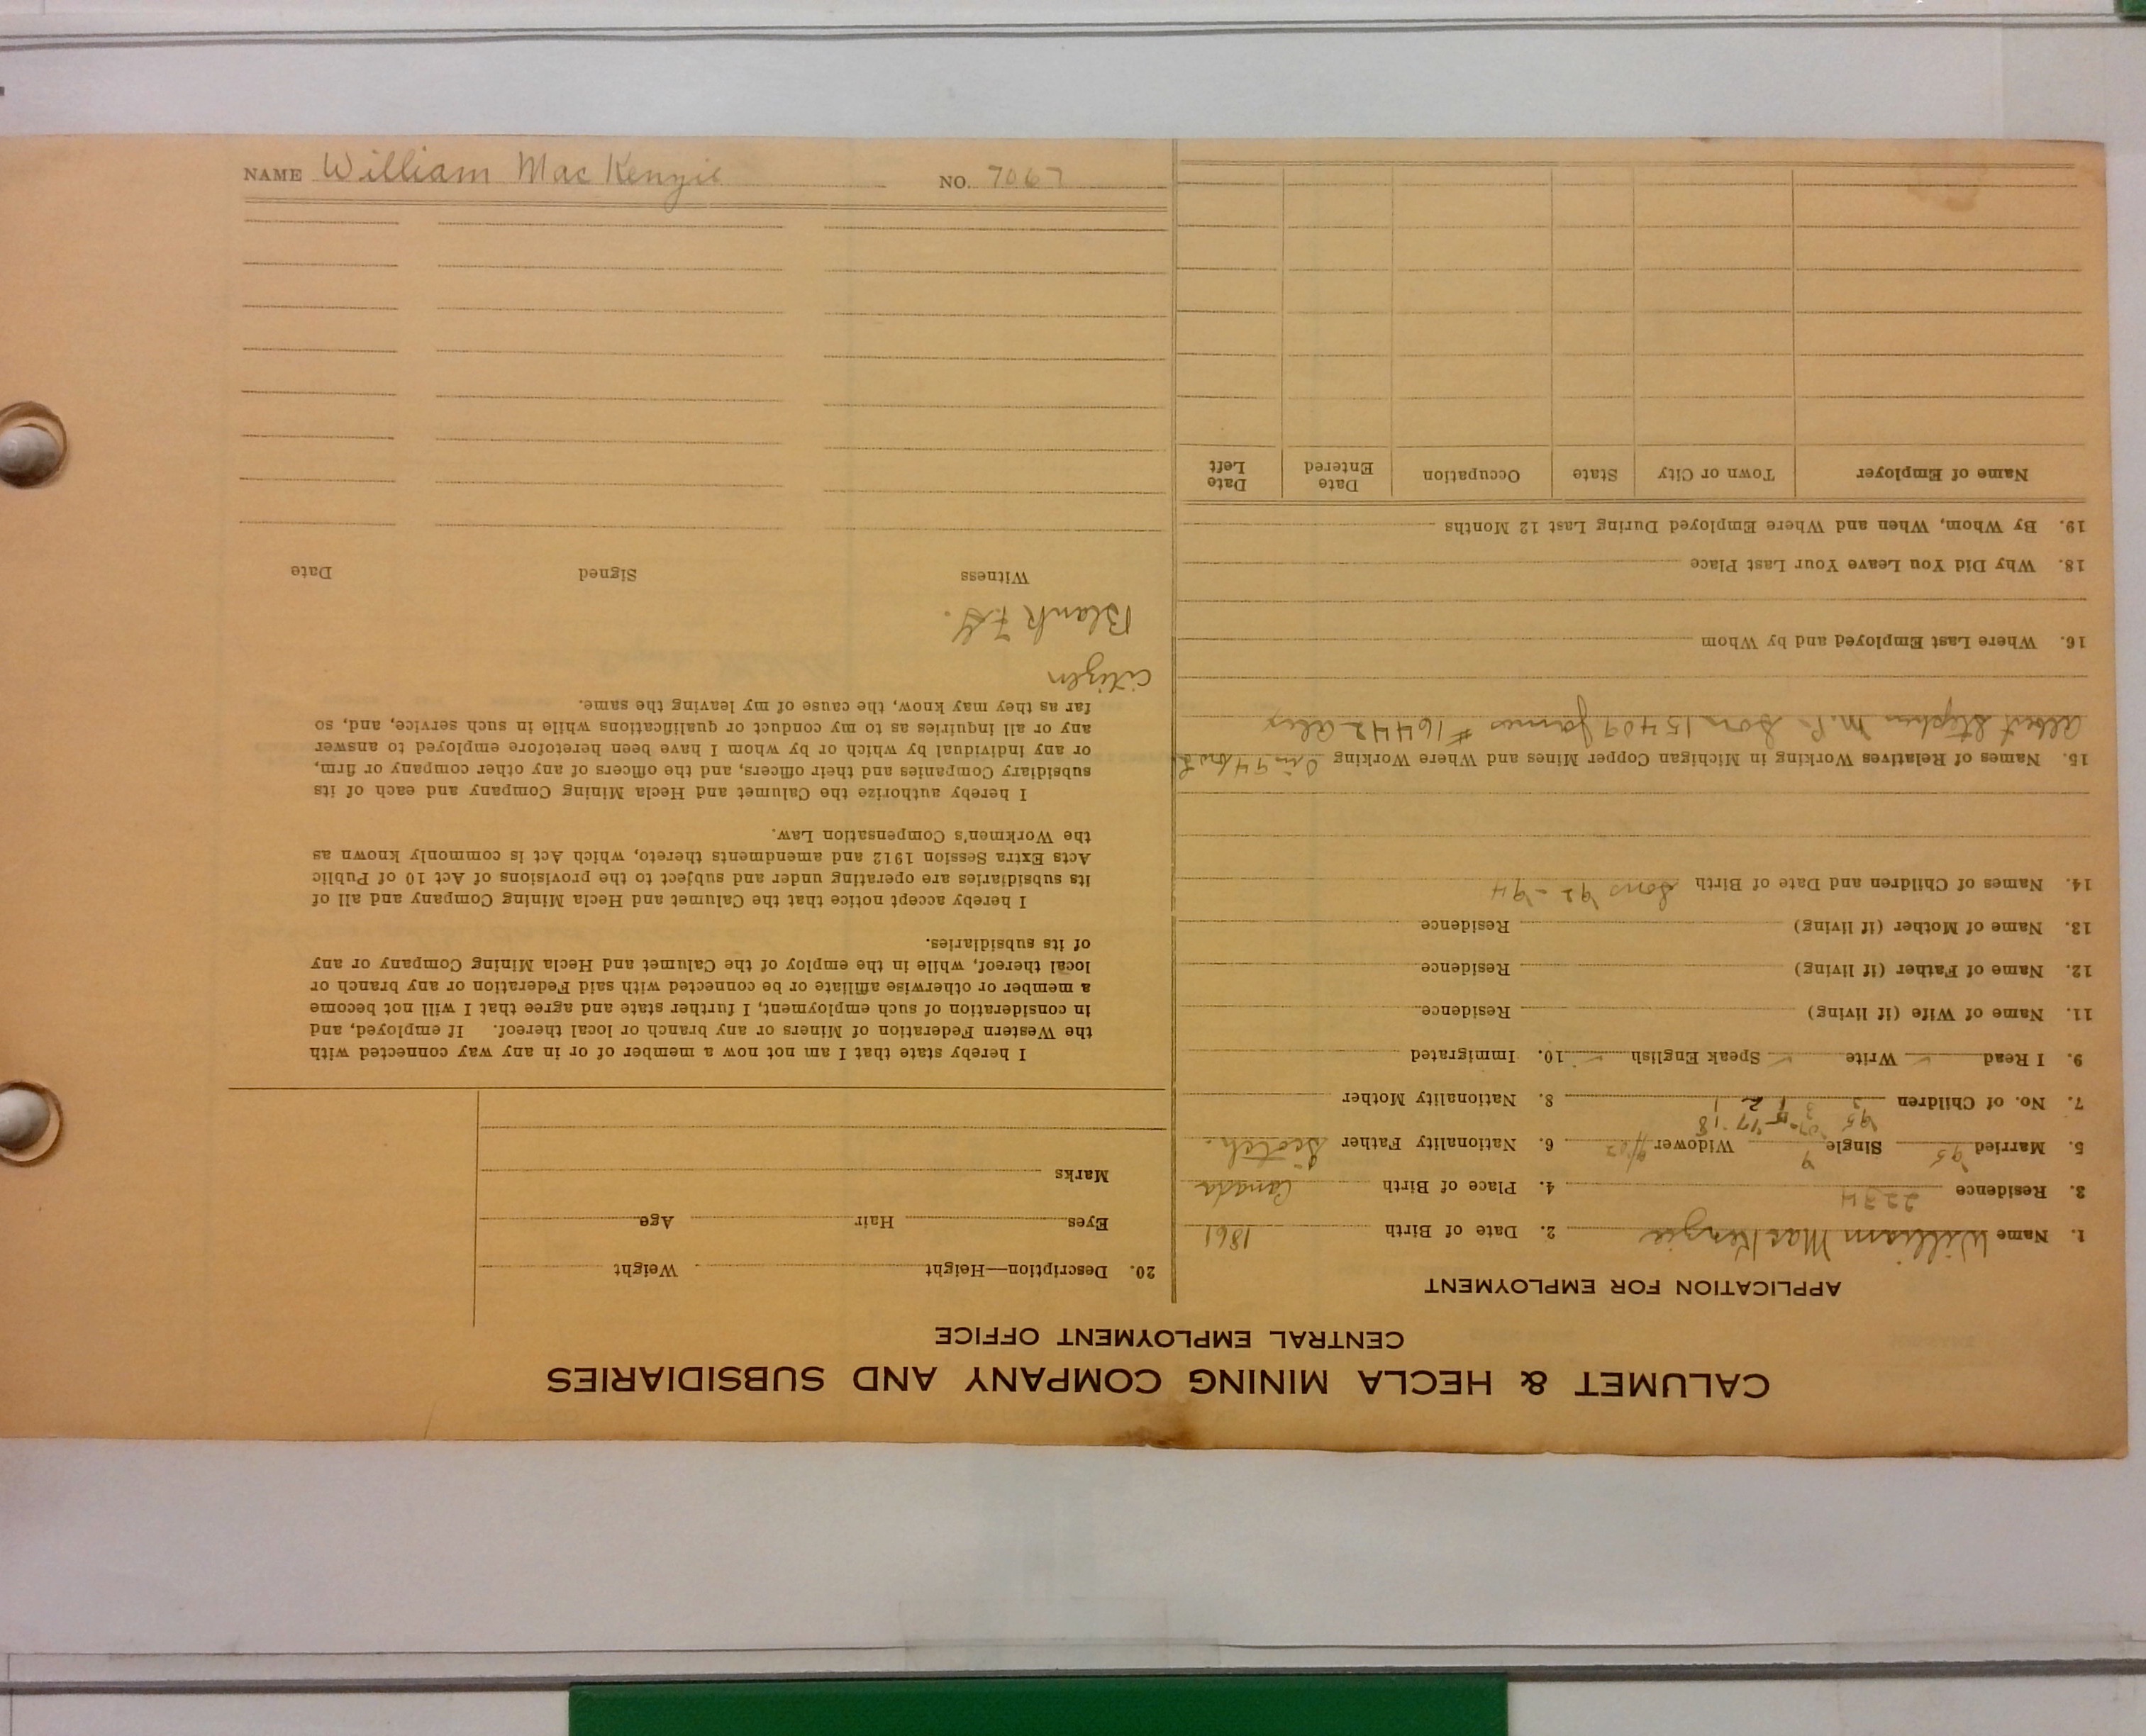 NAME William MacKenzie NO. 7067
CALUMET & HECLA MINING COMPANY AND SUBSIDIARIES
CENTRAL EMPLOYMENT OFFICE
APPLICATION FOR EMPLOYMENT
1. Name William MacKenzie 2. Date of Birth 1861
3. Residence 2234 4. Place of Birth Canada
5. Married 95 Single Widower 6. Nationality Father Scotch
7. No. of Children 8. Nationality Mother
9. I Read ✓ Write ✓ Speak English ✓ 10. Immigrated
11. Name of Wife (if living) Residence
12. Name of Father (if living) Residence
13. Name of Mother (if living) Residence
14. Names of Children and Date of Birth Sons 92 - 94
15. Names of Relatives Working in Michigan Copper Mines and Where Working
Albert Stephen M.P. Son 15409 James #16442
16. Where Last Employed and by Whom
18. Why Did You Leave Your Last Place
19. By Whom, When and Where Employed During Last 12 Months
Name of Employer Town or City State Occupation Date Entered Date Left
20. Description—Height Weight
Eyes Hair Age
Marks
I hereby state that I am not now a member of or in any way connected with
the Western Federation of Miners or any branch or local thereof. If employed, and
in consideration of such employment, I further state and agree that I will not become
a member or otherwise affiliate or be connected with said Federation or any branch or
local thereof, while in the employ of the Calumet and Hecla Mining Company or any
of its subsidiaries.
I hereby accept notice that the Calumet and Hecla Mining Company and all of
its subsidiaries are operating under and subject to the provisions of Act 10 of Public
Acts Extra Session 1912 and amendments thereto, which Act is commonly known as
the Workmen's Compensation Law.
I hereby authorize the Calumet and Hecla Mining Company and each of its
subsidiary Companies and their officers, and the officers of any other company or firm,
or any individual by which or by whom I have been heretofore employed to answer
any or all inquiries as to my conduct or qualifications while in such service, and, so
far as they may know, the cause of my leaving the same.
citizen
Blank
Witness Signed Date